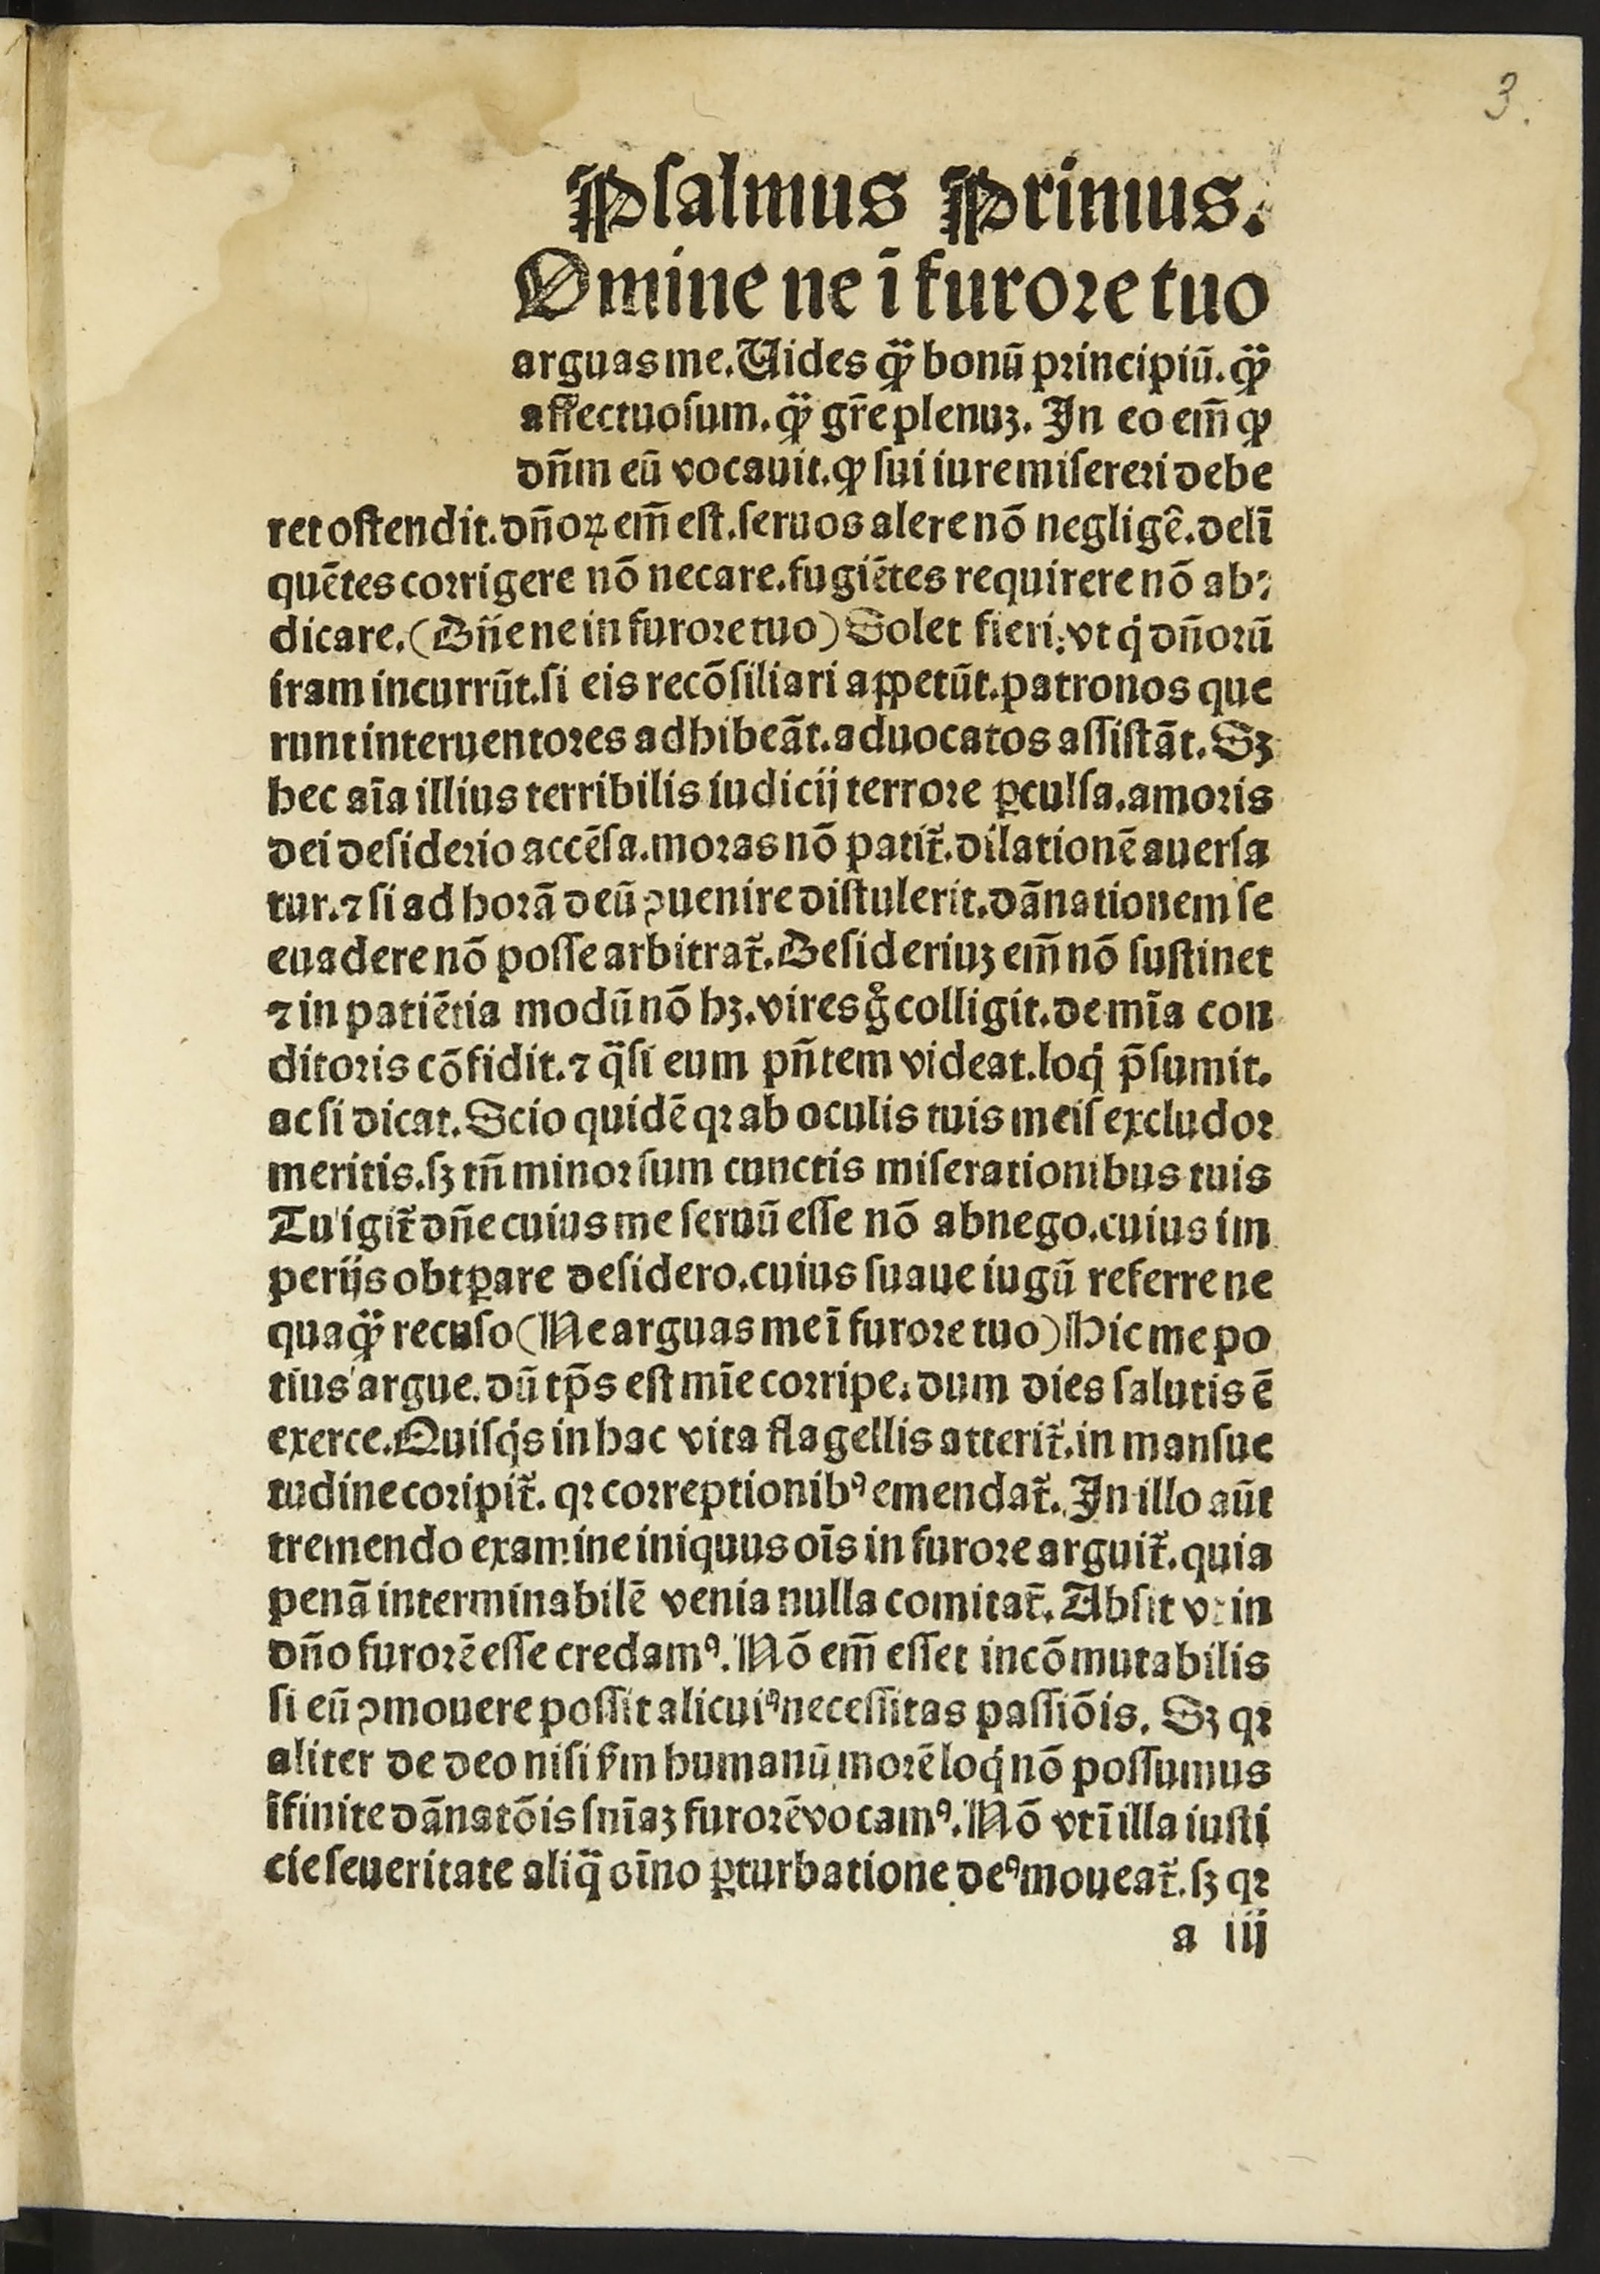 3.
Pſalmus Primus.
Omine ne ī furore tuo
arguas me. Uides ꝙ̈ bonū principiū. ꝙ̈
affectuoſum. ꝙ̈ gr̄e plenuꝫ. In eo em̄ ꝙ
dn̄m eū vocauit. ꝙ ſui iure miſereri debe
ret oſtendit. dn̄oꝝ em̄ eſt. ſeruos alere nō negligē. delī
quētes corrigere nō necare. fugiētes requirere nō ab⸗
dicare. (Dn̄e ne in furore tuo) Solet fieri: vt qͥ dn̄orū
iram incurrūt. ſi eis recōſiliari appetūt. patronos que
runt interuentores adhibeāt. aduocatos aſſiſtāt. Sꝫ
hec aīa illius terribilis iudicij terrore ꝑculſa. amoris
dei deſiderio accēſa. moras nō patit᷑. dilationē auerſa
tur. ⁊ ſi ad horā deū ꝯuenire diſtulerit. dānationem ſe
euadere nō poſſe arbitrat᷑. Deſideriuꝫ em̄ nō ſuſtinet
⁊ in patiētia modū nō hꝫ. vires gͦ colligit. de mīa con
ditoris cōfidit. ⁊ qͣſi eum pn̄tem videat. loqͥ p̄ſumit.
ac ſi dicat. Scio quidē qꝛ ab oculis tuis meiſ excludor
meritis. ſꝫ tn̄ minor ſum cunctis miſerationibus tuis
Tu igit᷑ dn̄e cuius me ſeruū eſſe nō abnego. cuius im
perijs obtꝑare deſidero. cuius ſuaue iugū referre ne
quaꝙ̈ recuſo (Ne arguas me ī furore tuo) Hic me po
tius argue. dū tp̄s eſt mīe corripe. dum dies ſalutis ē
exerce. Quiſqͥs in hac vita flagellis atterit᷑. in manſue
tudine coripit᷑. qꝛ correptionibꝰ emendat᷑. In illo aūt
tremendo examine iniquus oīs in furore arguit᷑. quia
penā interminabilē venia nulla comitat᷑. Abſit vt in
dn̄o furorē eſſe credamꝰ. Nō em̄ eſſet incōmutabilis
ſi eū ꝯmouere poſſit alicuiꝰ neceſſitas paſſiōis. Sꝫ qꝛ
aliter de deo niſi ẜm humanū morē loqͥ nō poſſumus
īfinite dānatōis ſnīaꝫ furorē vocamꝰ. Nō vt ī illa iuſti
cie ſeueritate aliqͣ oīno ꝑturbatione deꝰ moueat᷑. ſꝫ qꝛ
a iij